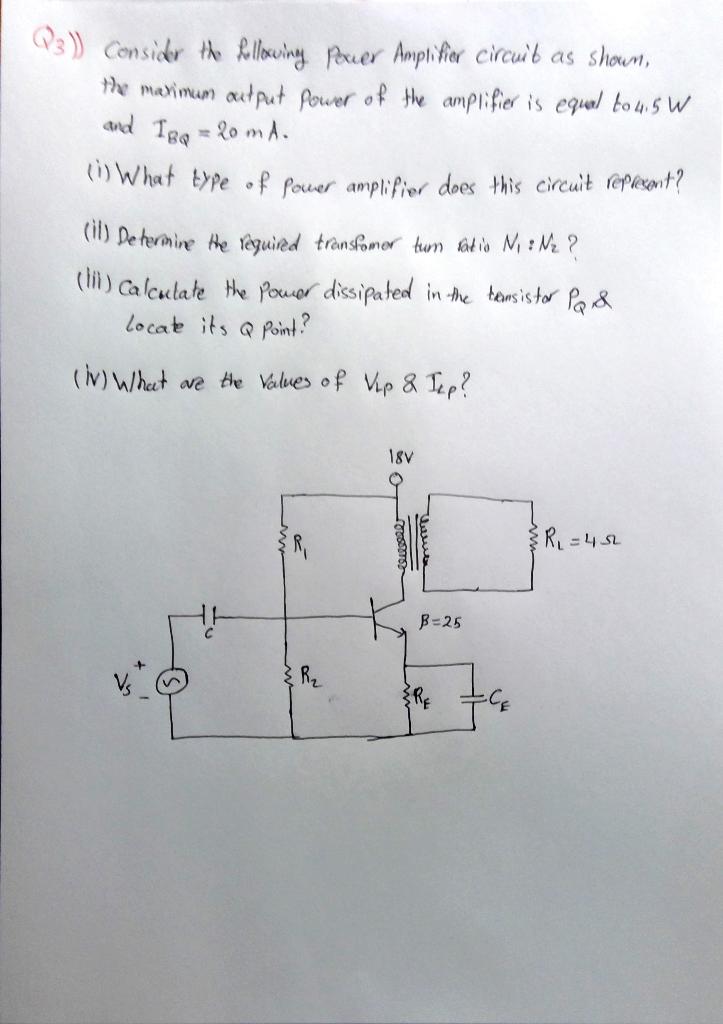 Q3)) Consider the following Power Amplifier circuit as shown,
the maximum output power of the amplifier is equal to 4.5 W
and IBQ = 20 mA.
(i) What type of power amplifier does this circuit represent?
(ii) Determine the required transfomer turn ratio N1 : N2 ?
(iii) Calculate the Power dissipated in the transistor PQ &
locate its Q point?
(iv) What are the values of VLP & ILP?
18V
R1
RL = 4 Ω
C
β=25
Vs
+
-
R2
RE
CE